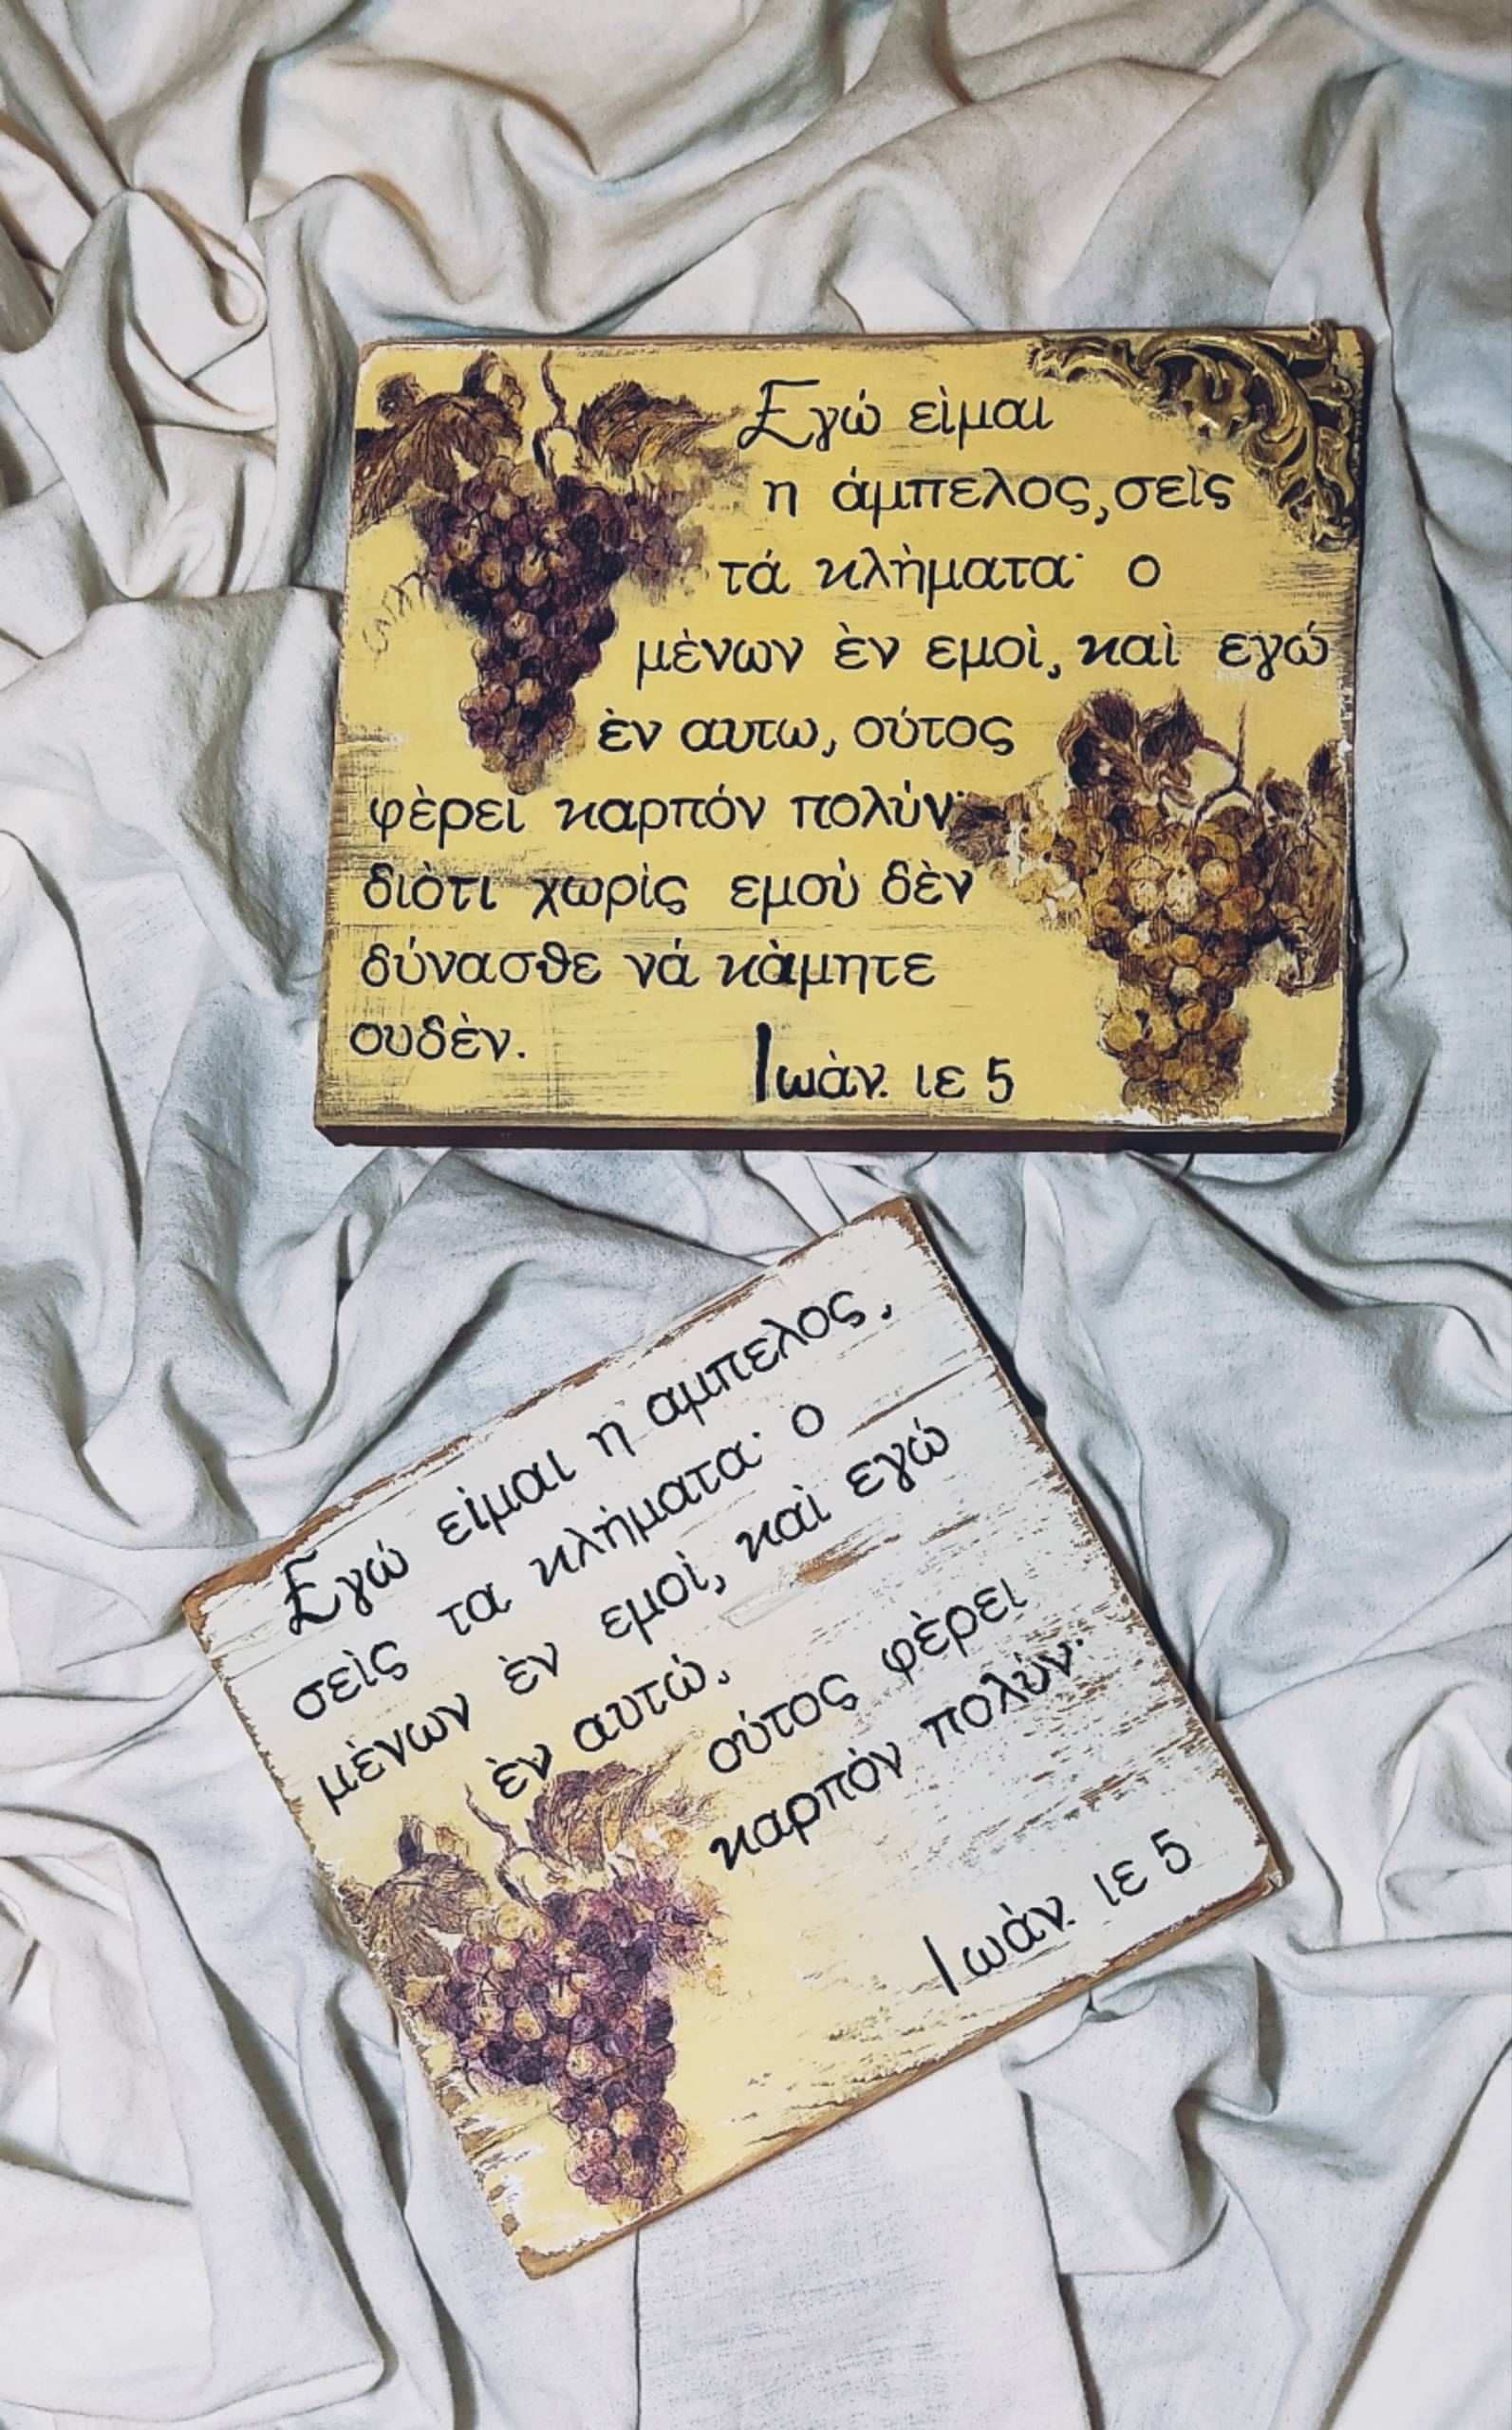 Εγώ εὶμαι
η άμπελος, σεὶς
τά κλὴματα· ο
μὲνων ὲν εμοὶ, καὶ εγώ
ὲν αυτω, ούτος
φὲρει καρπόν πολύν·
διὸτι χωρὶς εμού δὲν
δύνασθε νά κὰμητε
ουδὲν.
Ιωὰν. ιε 5
Εγώ είμαι η αμπελος,
σεὶς τα κλήματα· ο
μὲνων ὲν εμοὶ, καὶ εγώ
ὲν αυτώ,
ούτος φὲρει
καρπὸν πολύν·
Ιωὰν. ιε 5